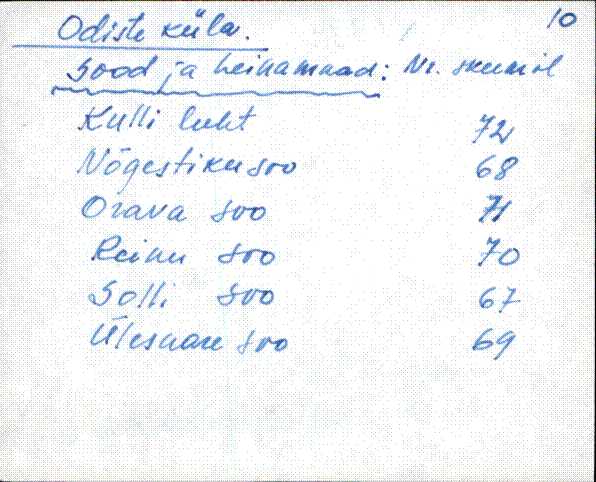 10
Odiste küla.
Sood ja heinamaad: Nr. skeemil
Kulli luht 72
Nõgestiku soo 68
Orava soo 71
Reinu soo 70
Solli soo 67
Ülesaare soo 69